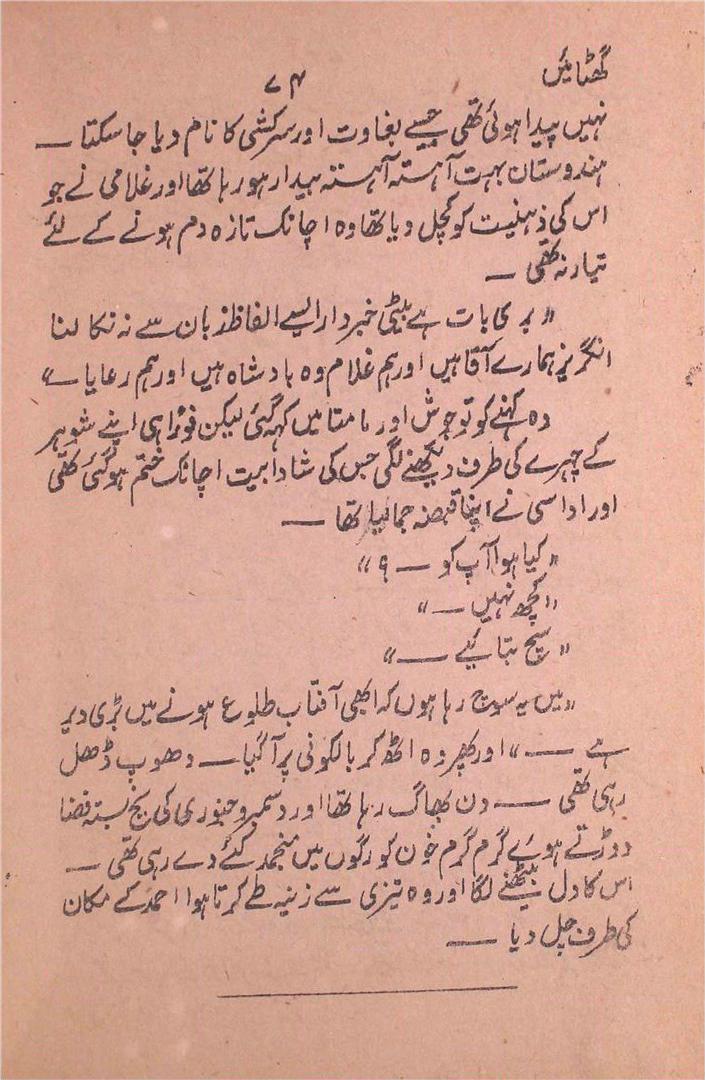 گھٹائیں
۷۴
نہیں پیدا ہوئی تھی جسے بغاوت اور سرکشی کا نام دیا جا سکتا —
ہندوستان بہت آہستہ آہستہ بیدار ہو رہا تھا اور غلامی نے جو
اس کی ذہنیت کو کچل دیا تھا وہ اچانک تازہ دم ہونے کے لئے
تیار نہ تھی —
"بری بات ہے بیٹی خبردار ایسے الفاظ زبان سے نہ نکالنا
انگریز ہمارے آقا ہیں اور ہم غلام وہ بادشاہ ہیں اور ہم رعایا —"
وہ کہنے کو تو جوش اور مامتا میں کہہ گئی لیکن فوراً ہی اپنے شوہر
کے چہرے کی طرف دیکھنے لگی جس کی شادابیت اچانک ختم ہو گئی تھی
اور اداسی نے اپنا قبضہ جما لیا تھا —
"کیا ہوا آپ کو — ؟"
"کچھ نہیں —"
"سچ بتائیے —"
"میں یہ سوچ رہا ہوں کہ ابھی آفتاب طلوع ہونے میں بڑی دیر
ہے —" اور پھر وہ اٹھ کر بالکونی پر آ گیا — دھوپ ڈھل
رہی تھی — دن بھاگ رہا تھا اور دسمبر و جنوری کی یخ بستہ فضا
دوڑتے ہوئے گرم گرم خون کو رگوں میں منجمد کئے دے رہی تھی —
اس کا دل بیٹھنے لگا اور وہ تیزی سے زینہ طے کرتا ہوا احمد کے مکان
کی طرف چل دیا —